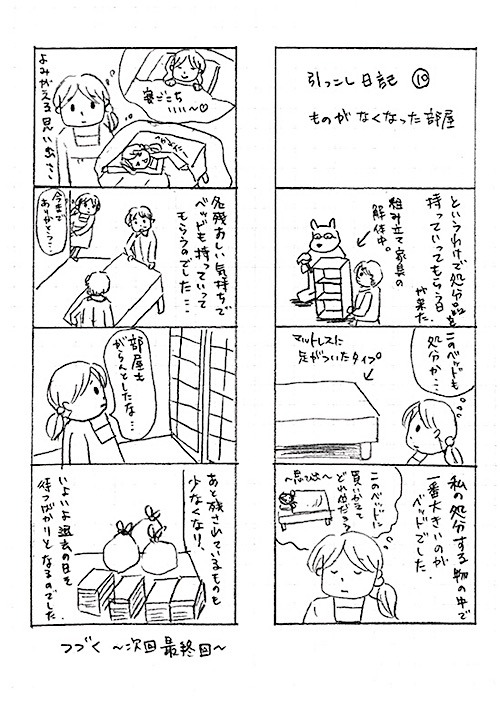 引っこし日記⑩
ものがなくなった部屋
というわけで処分品を
持っていってもらう日
が来た。
組み立て家具の
解体中。
このベッドも
処分か…
マットレスに
足がついたタイプ
私の処分する物の中で
一番大きいのが
ベッドでした。
このベッドに
買いかえて
どれ位だっけ
〜思い出〜
寝ごこち
いい〜♡
よみがえる思い出さ
名残おしい気持ちで
ベッドも持っていって
もらうのでした…
今まで
ありがとう…
部屋も
がらんとしたな…
あと残されているものも
少なくなり、
いよいよ退去の日を
待つばかりとなるのでした。
つづく 〜次回最終回〜